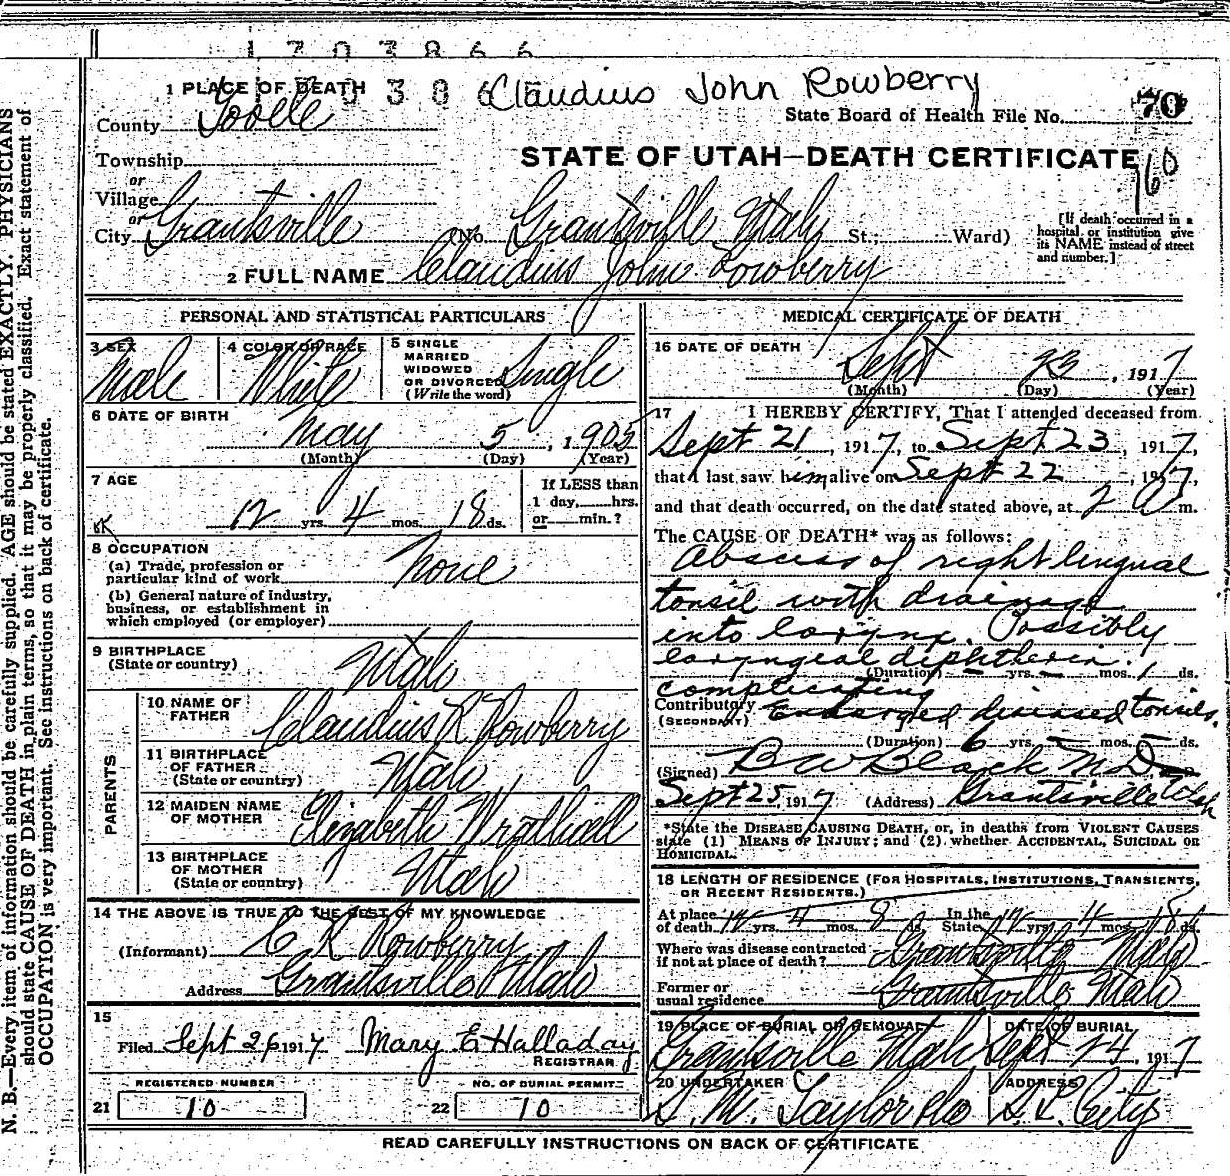 1703866
Claudius John Rowberry
1 PLACE OF DEATH
County Tooele
State Board of Health File No. 70
160
Township
STATE OF UTAH—DEATH CERTIFICATE
or
Village
or
City Grantsville (No. Grantsville Utah St.; Ward)
[If death occurred in a hospital or institution give its NAME instead of street and number.]
2 FULL NAME Claudius John Rowberry
PERSONAL AND STATISTICAL PARTICULARS
3 SEX Male
4 COLOR OR RACE White
5 SINGLE MARRIED WIDOWED OR DIVORCED (Write the word) Single
6 DATE OF BIRTH
May 5, 1905
(Month) (Day) (Year)
7 AGE
12 yrs. 4 mos. 18 ds.
If LESS than 1 day, hrs. or min.?
8 OCCUPATION
(a) Trade, profession or particular kind of work None
(b) General nature of industry, business, or establishment in which employed (or employer)
9 BIRTHPLACE
(State or country) Utah
PARENTS
10 NAME OF FATHER Claudius K Rowberry
11 BIRTHPLACE OF FATHER (State or country) Utah
12 MAIDEN NAME OF MOTHER Elizabeth Wrathall
13 BIRTHPLACE OF MOTHER (State or country) Utah
14 THE ABOVE IS TRUE TO THE BEST OF MY KNOWLEDGE
(Informant) C K Rowberry
Address Grantsville Utah
15
Filed Sept 26 1917 Mary E Halladay
REGISTRAR
REGISTERED NUMBER
21 10
NO. OF BURIAL PERMIT
22 10
MEDICAL CERTIFICATE OF DEATH
16 DATE OF DEATH
Sept 23, 1917
(Month) (Day) (Year)
17 I HEREBY CERTIFY, That I attended deceased from
Sept 21, 1917, to Sept. 23, 1917,
that I last saw him alive on Sept 22, 1917,
and that death occurred, on the date stated above, at 2 a m.
The CAUSE OF DEATH* was as follows:
Abscess of right lingual
tonsil with drainage
into larynx. Possibly
laryngeal diphtheria.
(Duration) – yrs. – mos. 1 ds.
complicating
Contributory (SECONDARY) Enlarged diseased tonsils.
(Duration) 6 yrs. – mos. – ds.
(Signed) B W Black M D
Sept 25, 1917 (Address) Grantsville Utah
*State the DISEASE CAUSING DEATH, or, in deaths from VIOLENT CAUSES
state (1) MEANS OF INJURY; and (2) whether ACCIDENTAL, SUICIDAL OR
HOMICIDAL.
18 LENGTH OF RESIDENCE (FOR HOSPITALS, INSTITUTIONS, TRANSIENTS,
OR RECENT RESIDENTS.)
At place of death 12 yrs. 4 mos. 8 ds. In the State 12 yrs. 4 mos. 18 ds.
Where was disease contracted if not at place of death? Grantsville Utah
Former or usual residence Grantsville Utah
19 PLACE OF BURIAL OR REMOVAL Grantsville Utah
DATE OF BURIAL Sept 24, 1917
20 UNDERTAKER S. M. Taylor Co
ADDRESS S. L. City
READ CAREFULLY INSTRUCTIONS ON BACK OF CERTIFICATE
N. B.—Every item of information should be carefully supplied. AGE should be stated EXACTLY. PHYSICIANS
should state CAUSE OF DEATH in plain terms, so that it may be properly classified. Exact statement of
OCCUPATION is very important. See instructions on back of certificate.